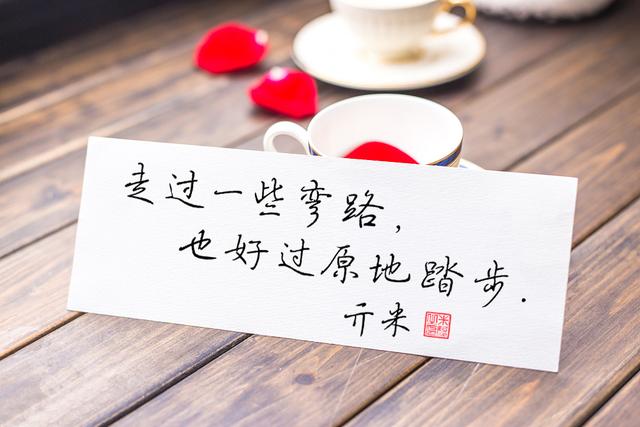 走过一些弯路,
也好过原地踏步.
亍米